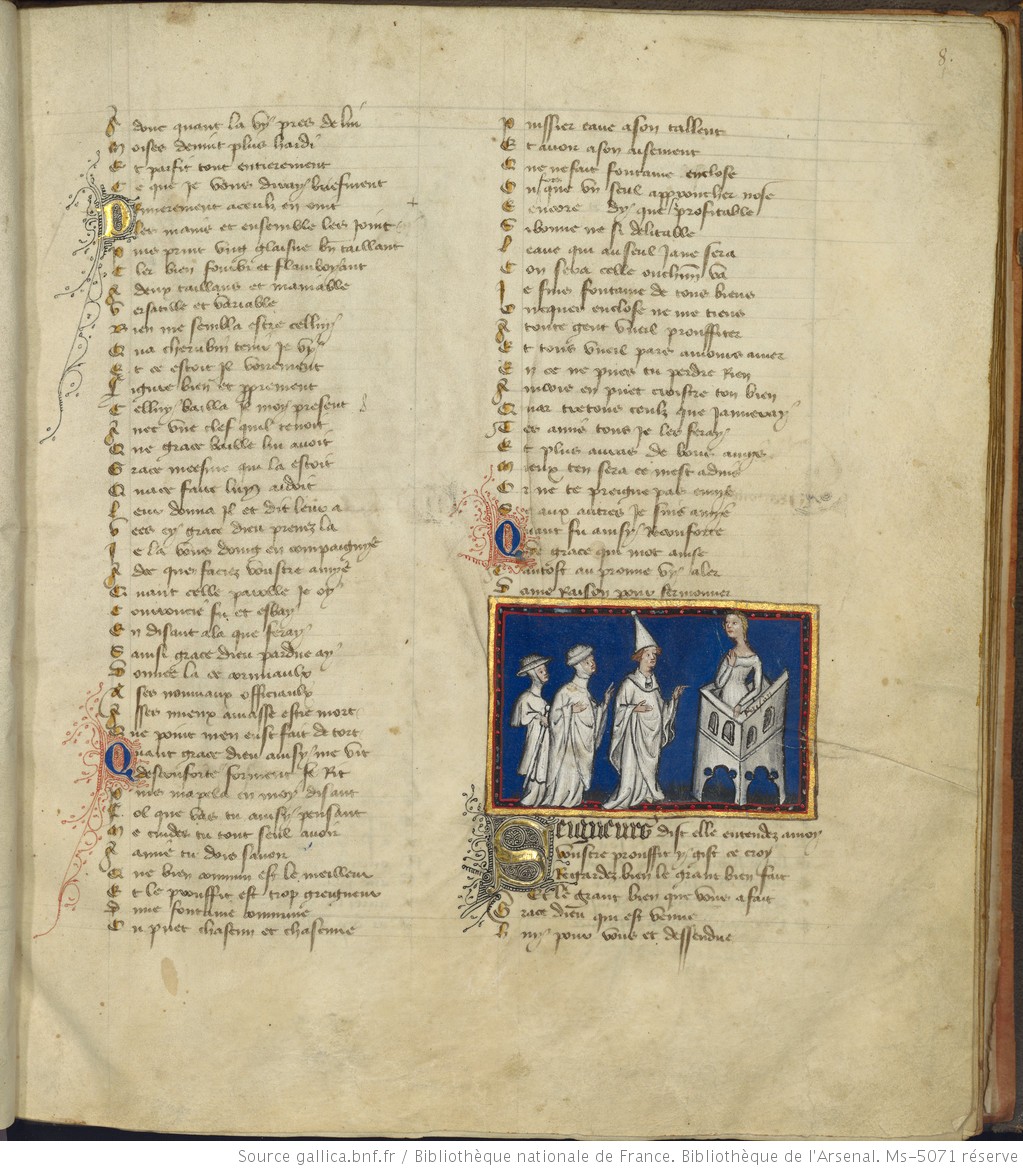 8.
A donc quant la vy pres de lui
M oises devint plus hardi
E t parfit tout entierement
C e que je vous diray briefment
P rimerement acculz en ont
les mains et ensemble les joint
P uis print ung glaisve bien taillant
C ler bien fourbi et flamboyant
A deux taillans et maniable
V ersatille et variable
B ien me sembla estre celluy
Qu a cherubin tenir je vy
E t ce estoit il voirement
F igure bien et proprement
C elluy bailla il moy present
A vec une clef quil tenoit
Q ue grace baillie lui avoit
G race meesme qui la estoit
Q ui a ce faire luy aidoit
L eur donna il et dit leur a
V ees cy grace dieu prenez la
J e la vous doing en compaignye
A fce que faciez vostre amye
Q uant celle parolle je oy
C ourroucié fu et esbay
E n disant a la que feray
S ainsi grace dieu pardue ay
D onnee la ce cornuaulx
A ses nouviaux officiaulx
A sses mieux amasse estre mort
Que point men eust fait de tort
Q uant grace dieu ainsy me vit
desconforte forment se rit
P uis mapela en moy disant
F ol que vas tu ainsy pensant
M e cuides tu tout seul avoir
A amie tu dois savoir
Q ue bien commun est le meilleur
E t le prouffit est trop greigneur
D une fontaine commune
O u puet chascun et chascune
P uissier eaue a son tallent
E t avoir a son aisement
Q ue ne seroit fontaine enclose
O u que un seul approucher nose
E ncore dy que profitable
S i bonne ne si delitable
L eaue qui au seul jane sera
C on sera celle ou chascun va
J e suis fontaine de tous biens
J a ncques enclose ne me tiens
A toute gent vueil prouffiter
E t tous vueil par amours amer
E n ce ne pues tu perdre rien
A incois en puet croistre ton bien
Q uar trestous ceulz que jameray
T es amis tous je les feray
E t plus auras de bons amys
M ieux ten sera ce mest advis
O r ne te preigne pas envye
S e aux autres je suis amye
Q uant fu ainsy reconforté
de grace qui mot amse
Tantost au pronne vy aler
D ame raison pour sermonner
Seigneurs dist elle entendez a moy
Vostre prouffit y gist ce croy
Regardez bien le grant bien fait
Et le grant bien que vous a fait
G race dieu qui est venue
C y pour vous et dessendue
Source gallica.bnf.fr / Bibliothèque nationale de France. Bibliothèque de l'Arsenal. Ms-5071 réserve